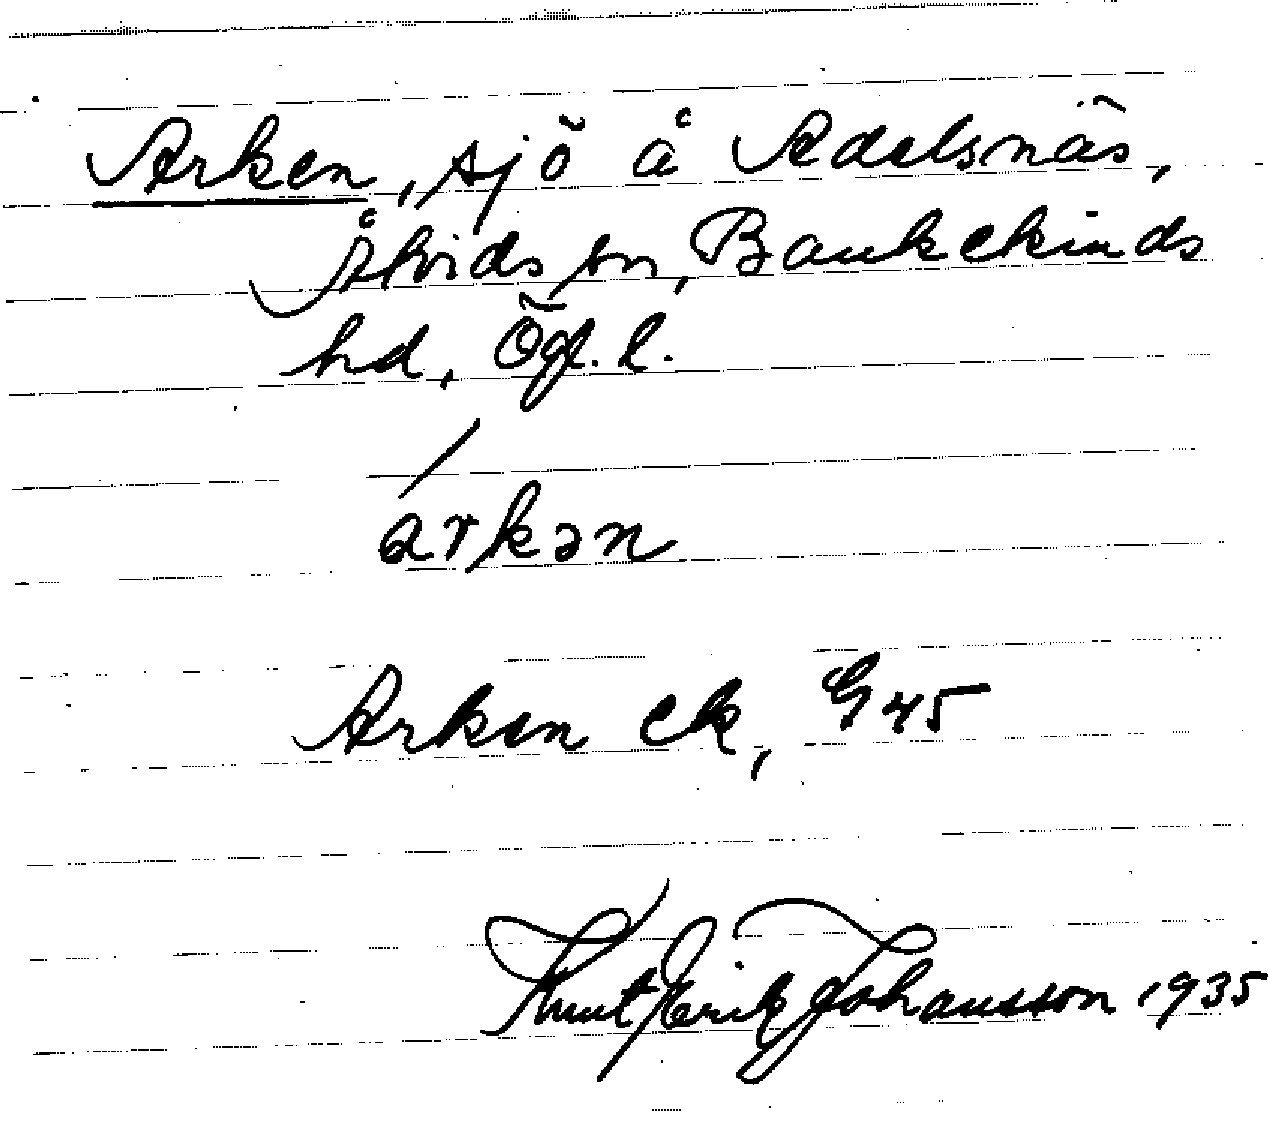 Arken, sjö å Adelsnäs,
Åtvids sn, Bankekinds
hd, Ögl. l.
/
arkən
Arken ek, G 45
Knut Erik Johansson 1935